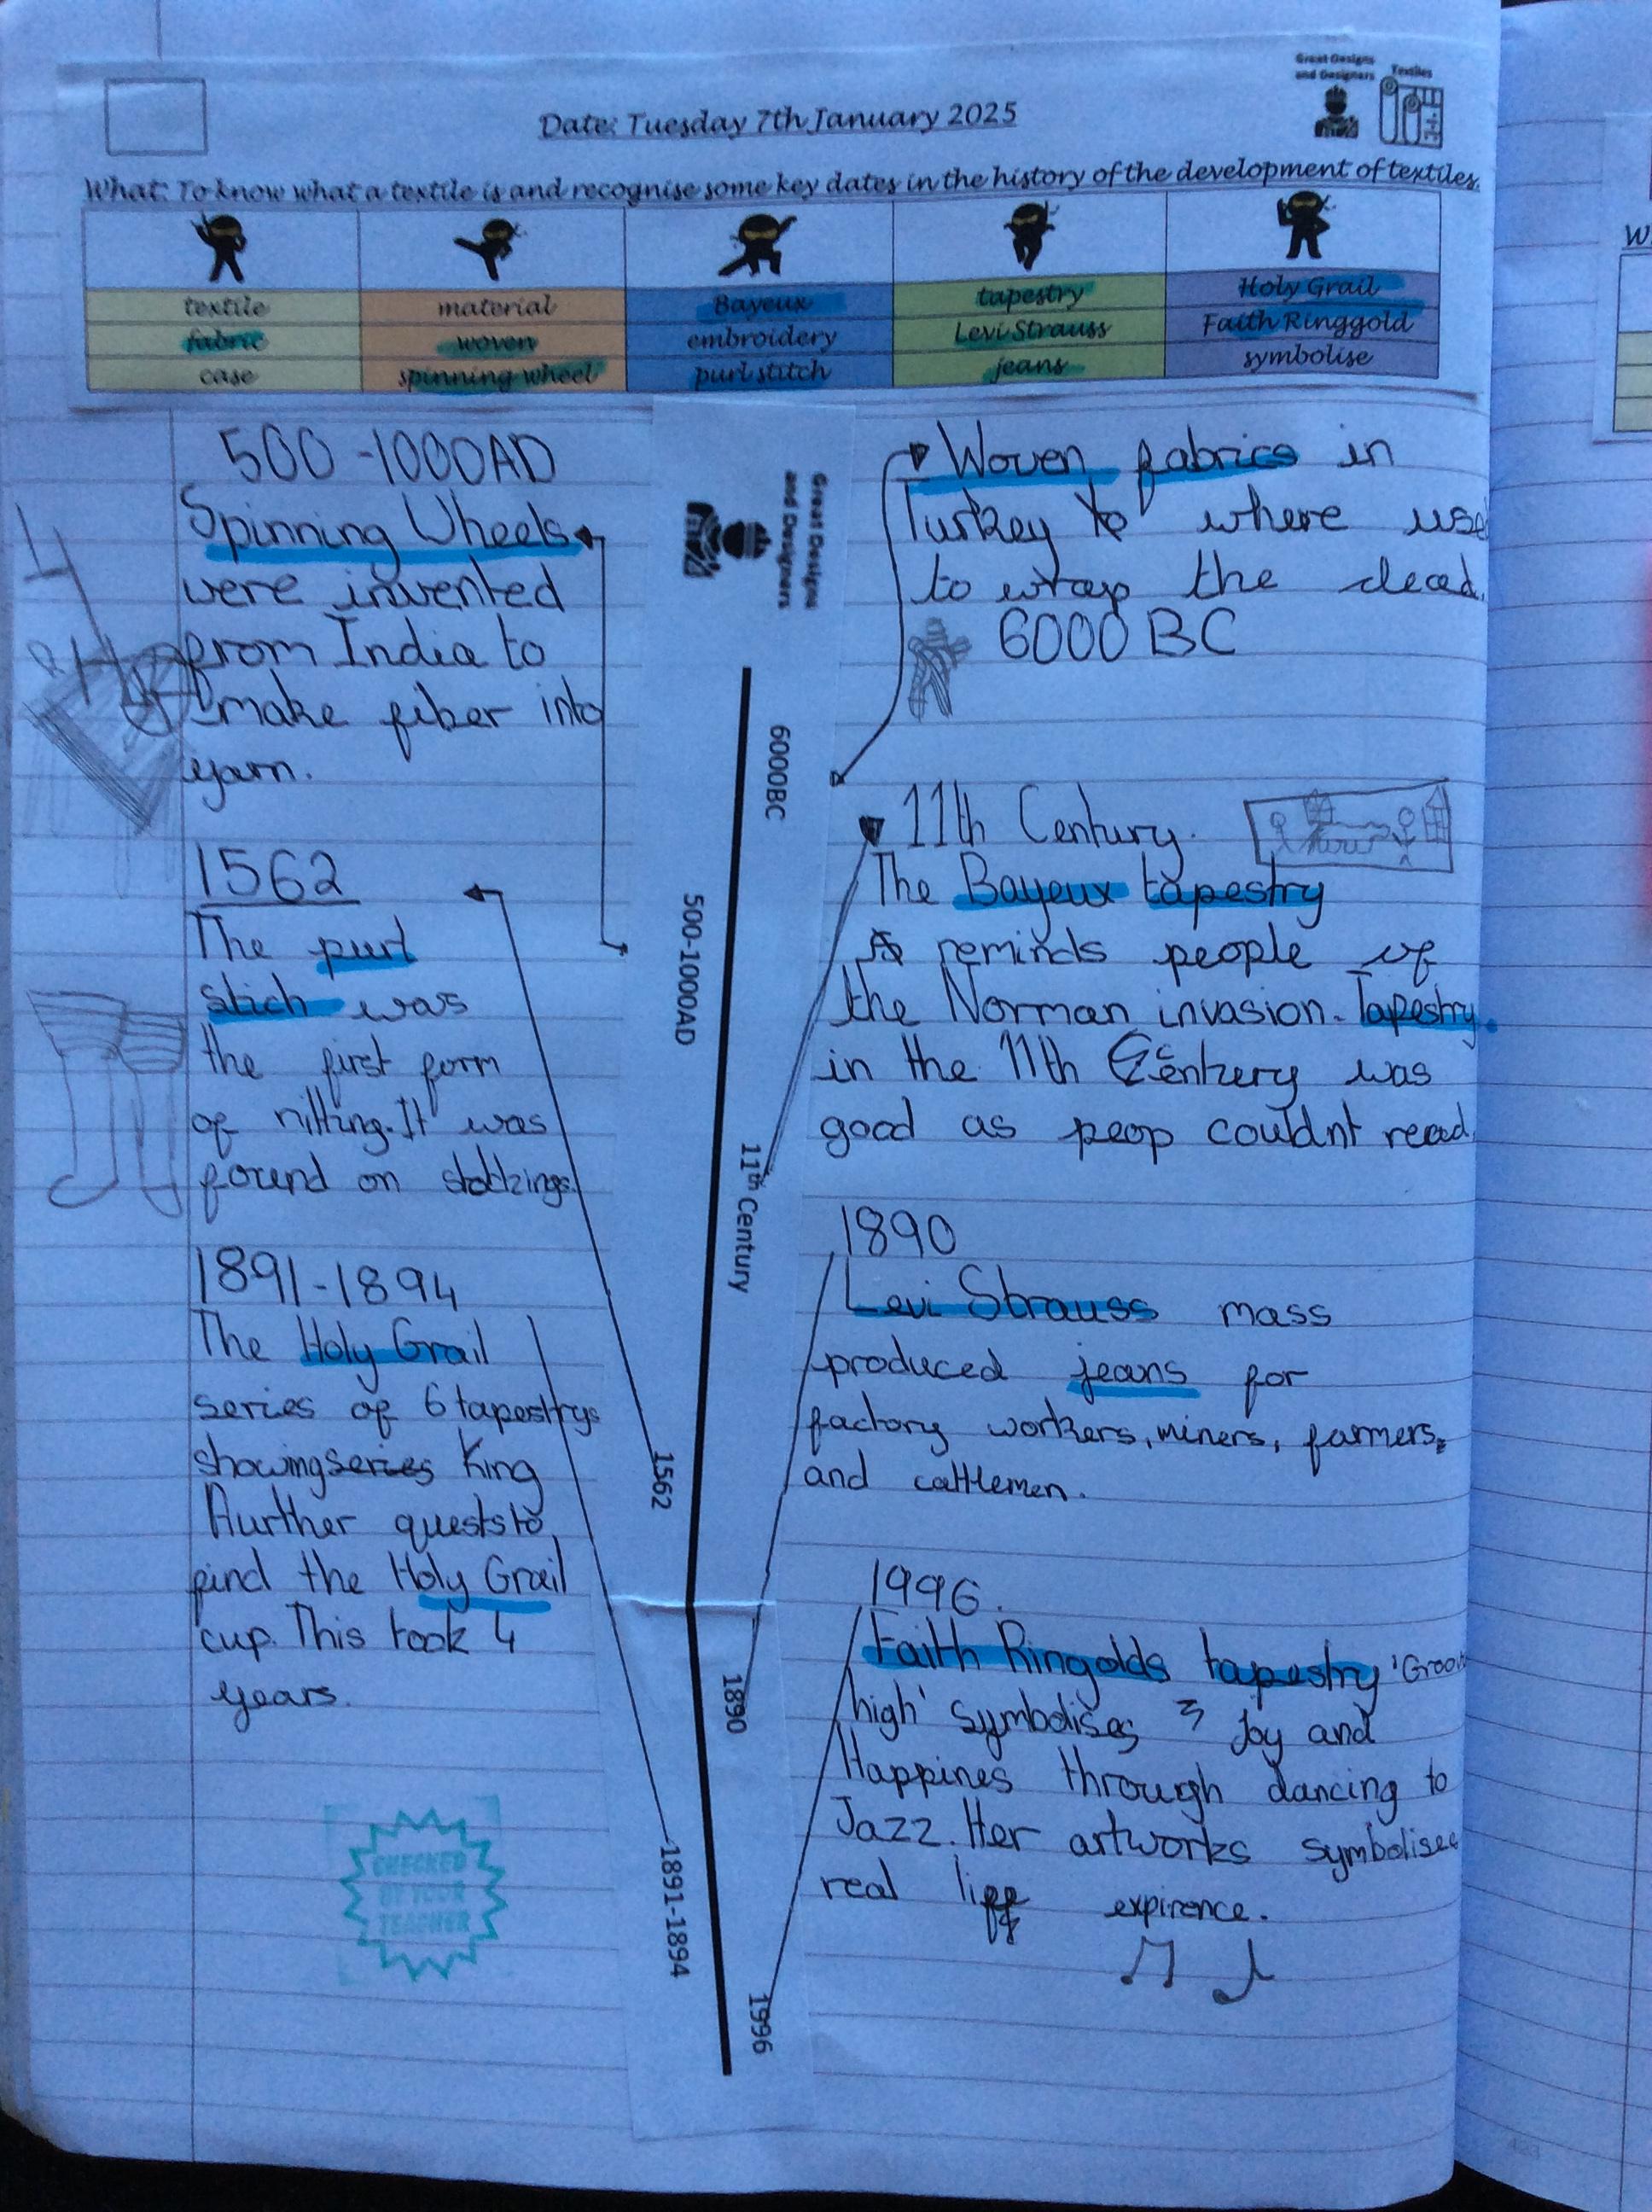 Great Designs
and Designers
Textiles
Date: Tuesday 7th January 2025
What: To know what a textile is and recognise some key dates in the history of the development of textiles.
textile
fabric
case
material
woven
spinning wheel
Bayeux
embroidery
purl stitch
tapestry
Levi Strauss
jeans
Holy Grail
Faith Ringgold
symbolise
500-1000AD
Spinning Wheels
were invented
from India to
make fiber into
yarn.
1562
The purl
stich was
the first form
of nitting. It was
found on stockings.
1891-1894
The Holy Grail
series of 6 tapestrys
showing series King
Aurther quests to
find the Holy Grail
cup. This took 4
years.
CHECKED
BY YOUR
TEACHER
Great Designs
and Designers
6000BC
500-1000AD
11th Century
1562
1890
1891-1894
1996
Woven fabrics in
Turkey to where use
to wrap the dead.
6000 BC
11th Century.
The Bayeux tapestry
reminds people of
the Norman invasion. Tapestry
in the 11th Centery was
good as peop couldnt read
1890
Levi Strauss mass
produced jeans for
factory workers, miners, farmers,
and cattlemen.
1996.
Faith Ringolds tapestry 'Groov
high' symbolises Joy and
Happines through dancing to
Jazz. Her artworks symbolises
real expirence.
W